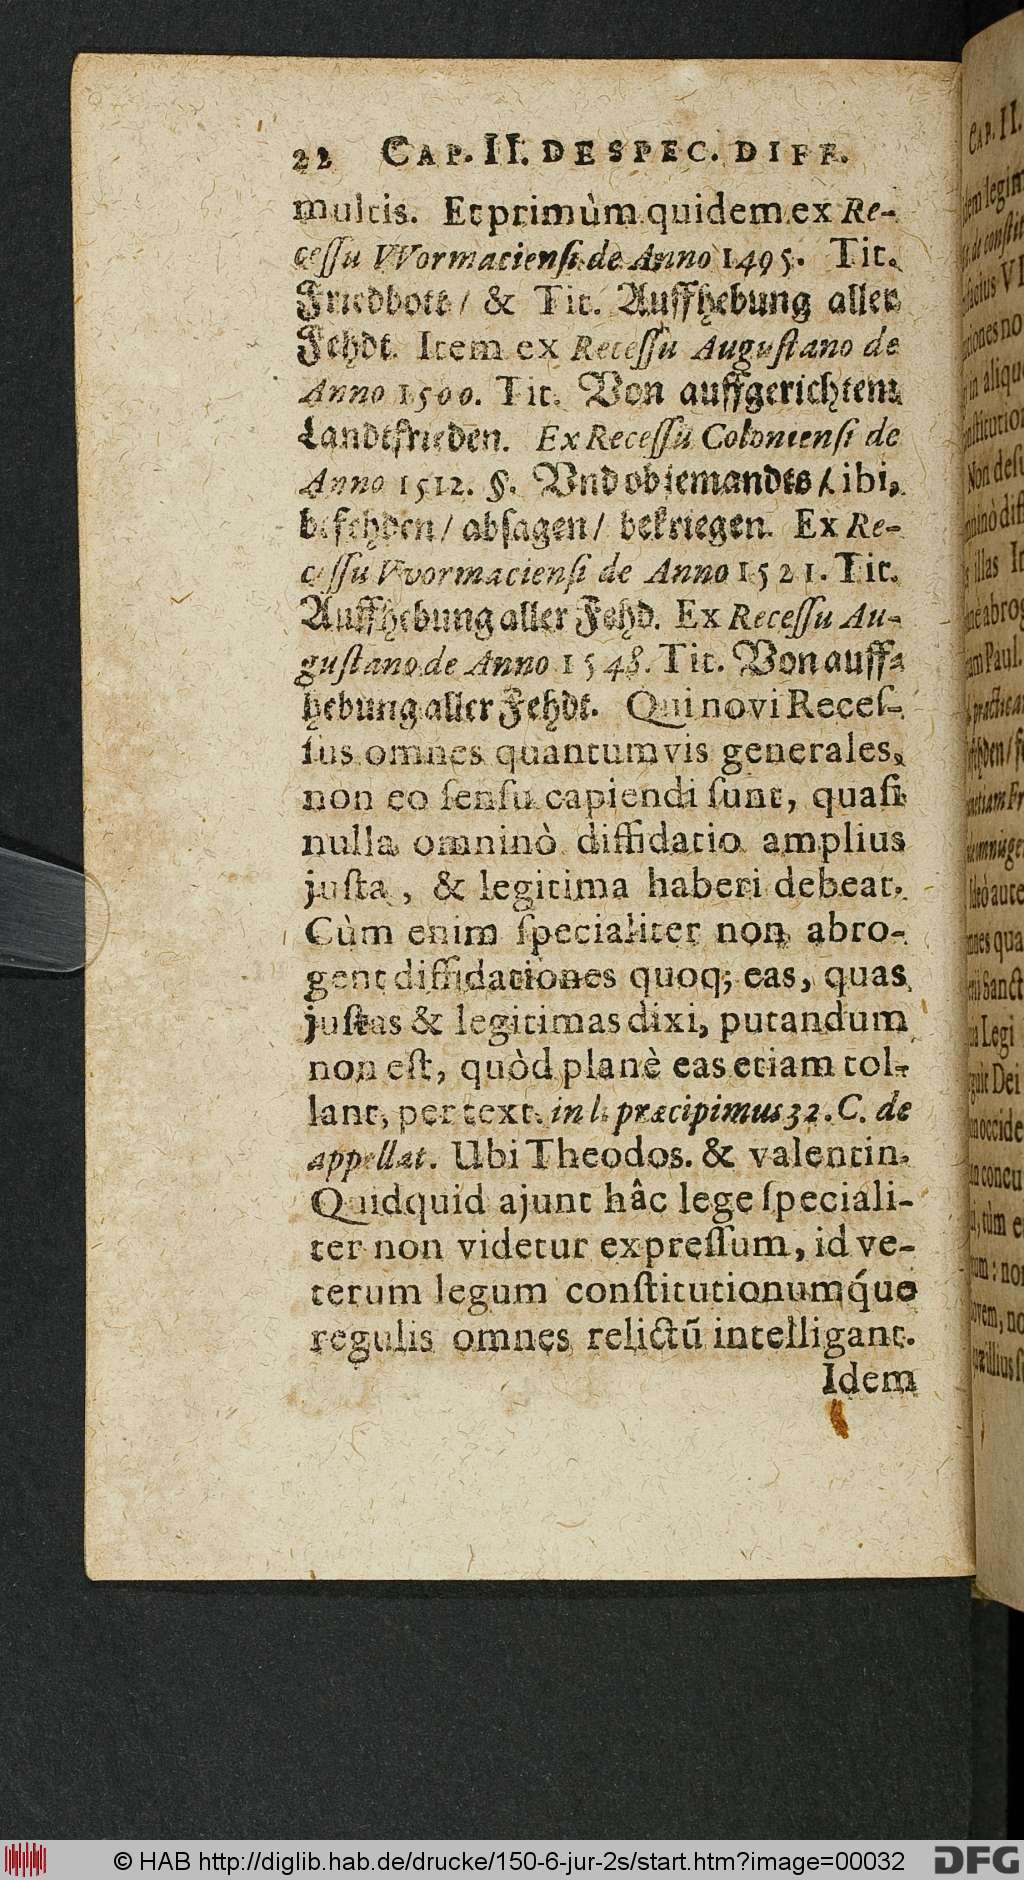 22 CAP. II. DE SPEC. DIFF.
multis. Et primùm quidem ex Re-
cessu VVormaciensi de Anno 1495. Tit.
Friedbott / & Tit. Auffhebung aller
Fehdt. Item ex Recessu Augustano de
Anno 1500. Tit. Von auffgerichtem
Landtfrieden. Ex Recessu Coloniensi de
Anno 1512. §. Vnd ob jemandts / ibi,
befehden / absagen / bekriegen. Ex Re-
cessu VVormaciensi de Anno 1521. Tit.
Auffhebung aller Fehd. Ex Recessu Au-
gustano de Anno 1548. Tit. Von auff-
hebung aller Fehdt. Qui novi Reces-
sus omnes quantumvis generales,
non eo sensu capiendi sunt, quasi
nulla omninò diffidatio amplius
justa, & legitima haberi debeat.
Cùm enim specialiter non abro-
gent diffidationes quoq; eas, quas
justas & legitimas dixi, putandum
non est, quòd planè eas etiam tol-
lant, per text. in l. præcipimus 32. C. de
appellat. Ubi Theodos. & valentin.
Quidquid ajunt hâc lege speciali-
ter non videtur expressum, id ve-
terum legum constitutionumq́ue
regulis omnes relictũ intelligant.
Idem
CAP. II.
© HAB http://diglib.hab.de/drucke/150-6-jur-2s/start.htm?image=00032
DFG